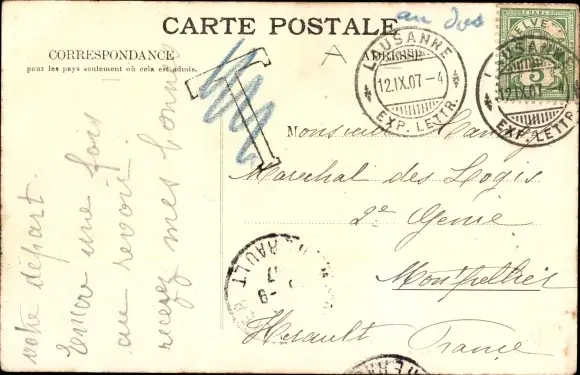 CARTE POSTALE
au dos
CORRESPONDANCE
pour les pays seulement où cela est admis.
ADRESSE
A
T
LAUSANNE
12.IX.07-4
EXP. LETTR.
HELVETIA
FRANCO
5
LAUSANNE
12.IX.07
EXP. LETTR.
Monsieur
Marechal des Logis
2e Genie
Montpellier
Herault France
HERAULT
votre départ.
Encore une fois
au revoir!
recevez mes bonnes